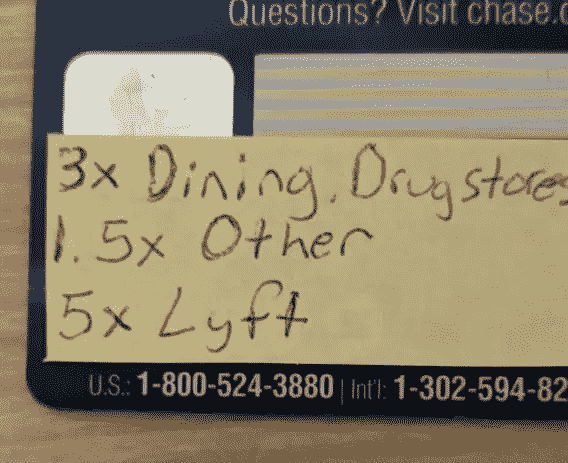 Questions? Visit chase.c
3x Dining, Drugstores
1.5x Other
5x Lyft
U.S.: 1-800-524-3880 | Int'l: 1-302-594-82